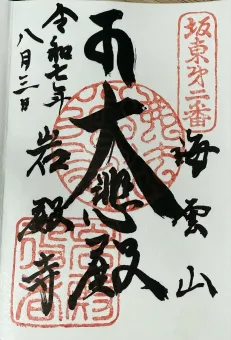 坂東㐧二番
海雲山
大悲殿
岩殿寺
令和七年
八月三日